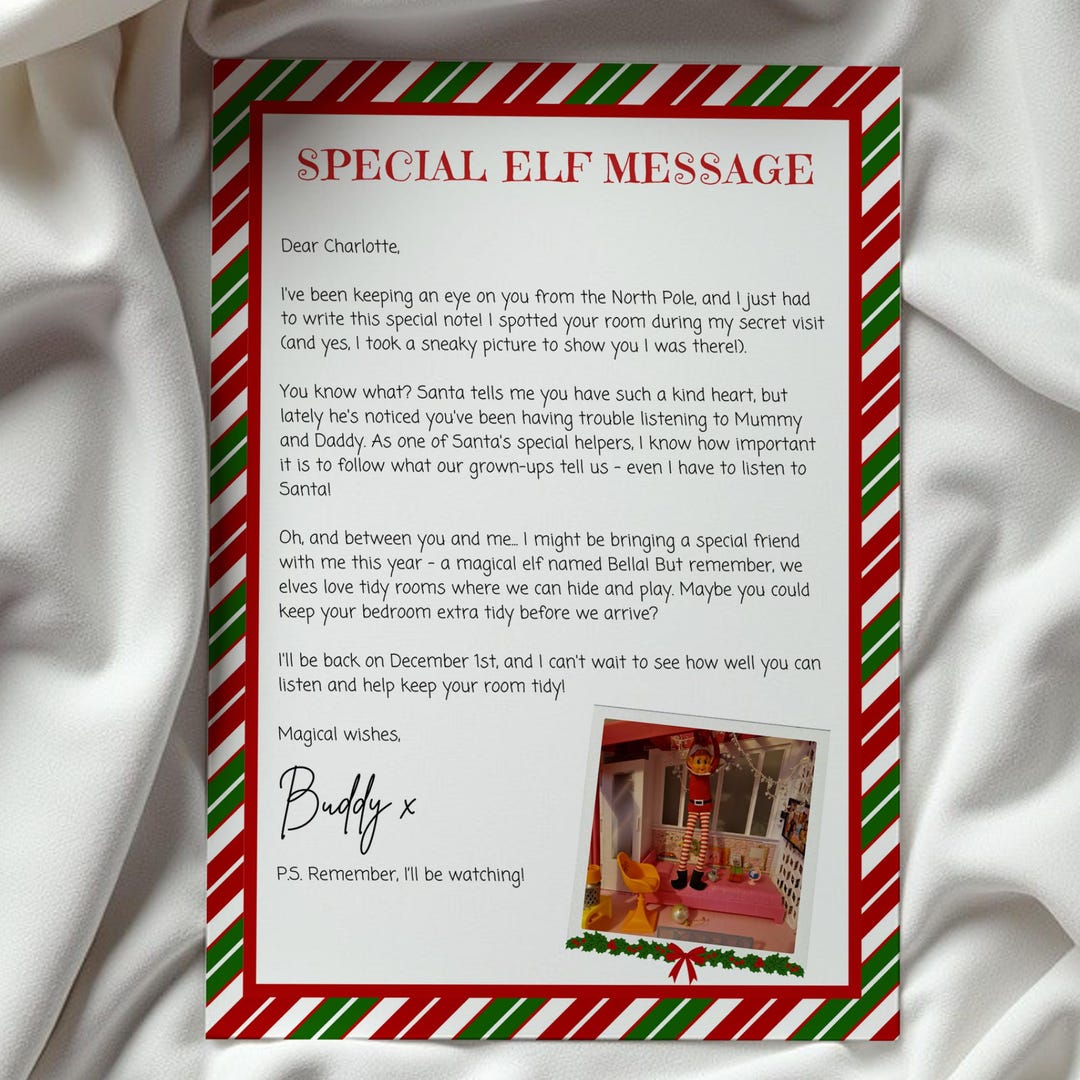 SPECIAL ELF MESSAGE
Dear Charlotte,
I've been keeping an eye on you from the North Pole, and I just had
to write this special note! I spotted your room during my secret visit
(and yes, I took a sneaky picture to show you I was there!).
You know what? Santa tells me you have such a kind heart, but
lately he's noticed you've been having trouble listening to Mummy
and Daddy. As one of Santa's special helpers, I know how important
it is to follow what our grown-ups tell us - even I have to listen to
Santa!
Oh, and between you and me... I might be bringing a special friend
with me this year - a magical elf named Bella! But remember, we
elves love tidy rooms where we can hide and play. Maybe you could
keep your bedroom extra tidy before we arrive?
I'll be back on December 1st, and I can't wait to see how well you can
listen and help keep your room tidy!
Magical wishes,
Buddy x
P.S. Remember, I'll be watching!